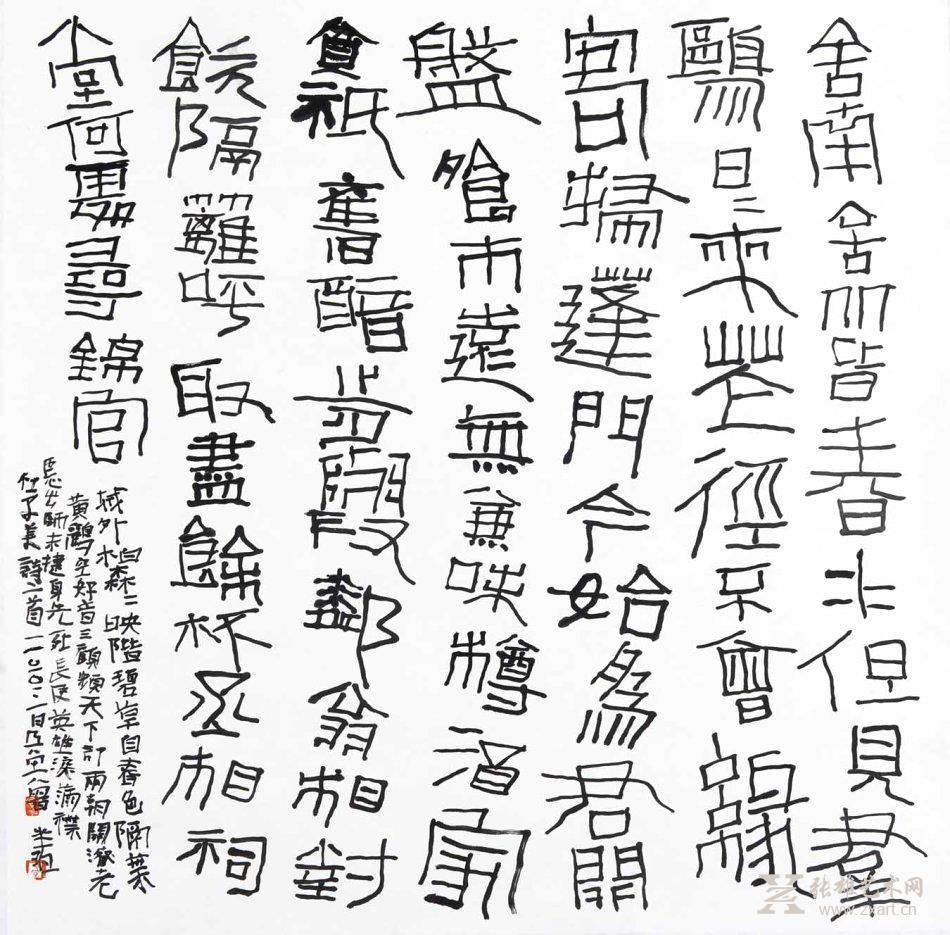 舍南舍北皆春水但見羣
鷗日二來花徑不曾緣
客掃蓬門今始為君開
盤飧市遠無兼味樽酒家
貧祇舊醅肯與鄰翁相對
飲隔籬呼取盡餘杯丞相祠
堂何處尋錦官
城外柏森二映階碧草自春色隔葉
黃鸝空好音三顧頻天下計兩朝開濟老
臣心出師未捷身先死長使英雄淚滿襟
杜子美詩二首
张雄艺术网
www.zxart.cn